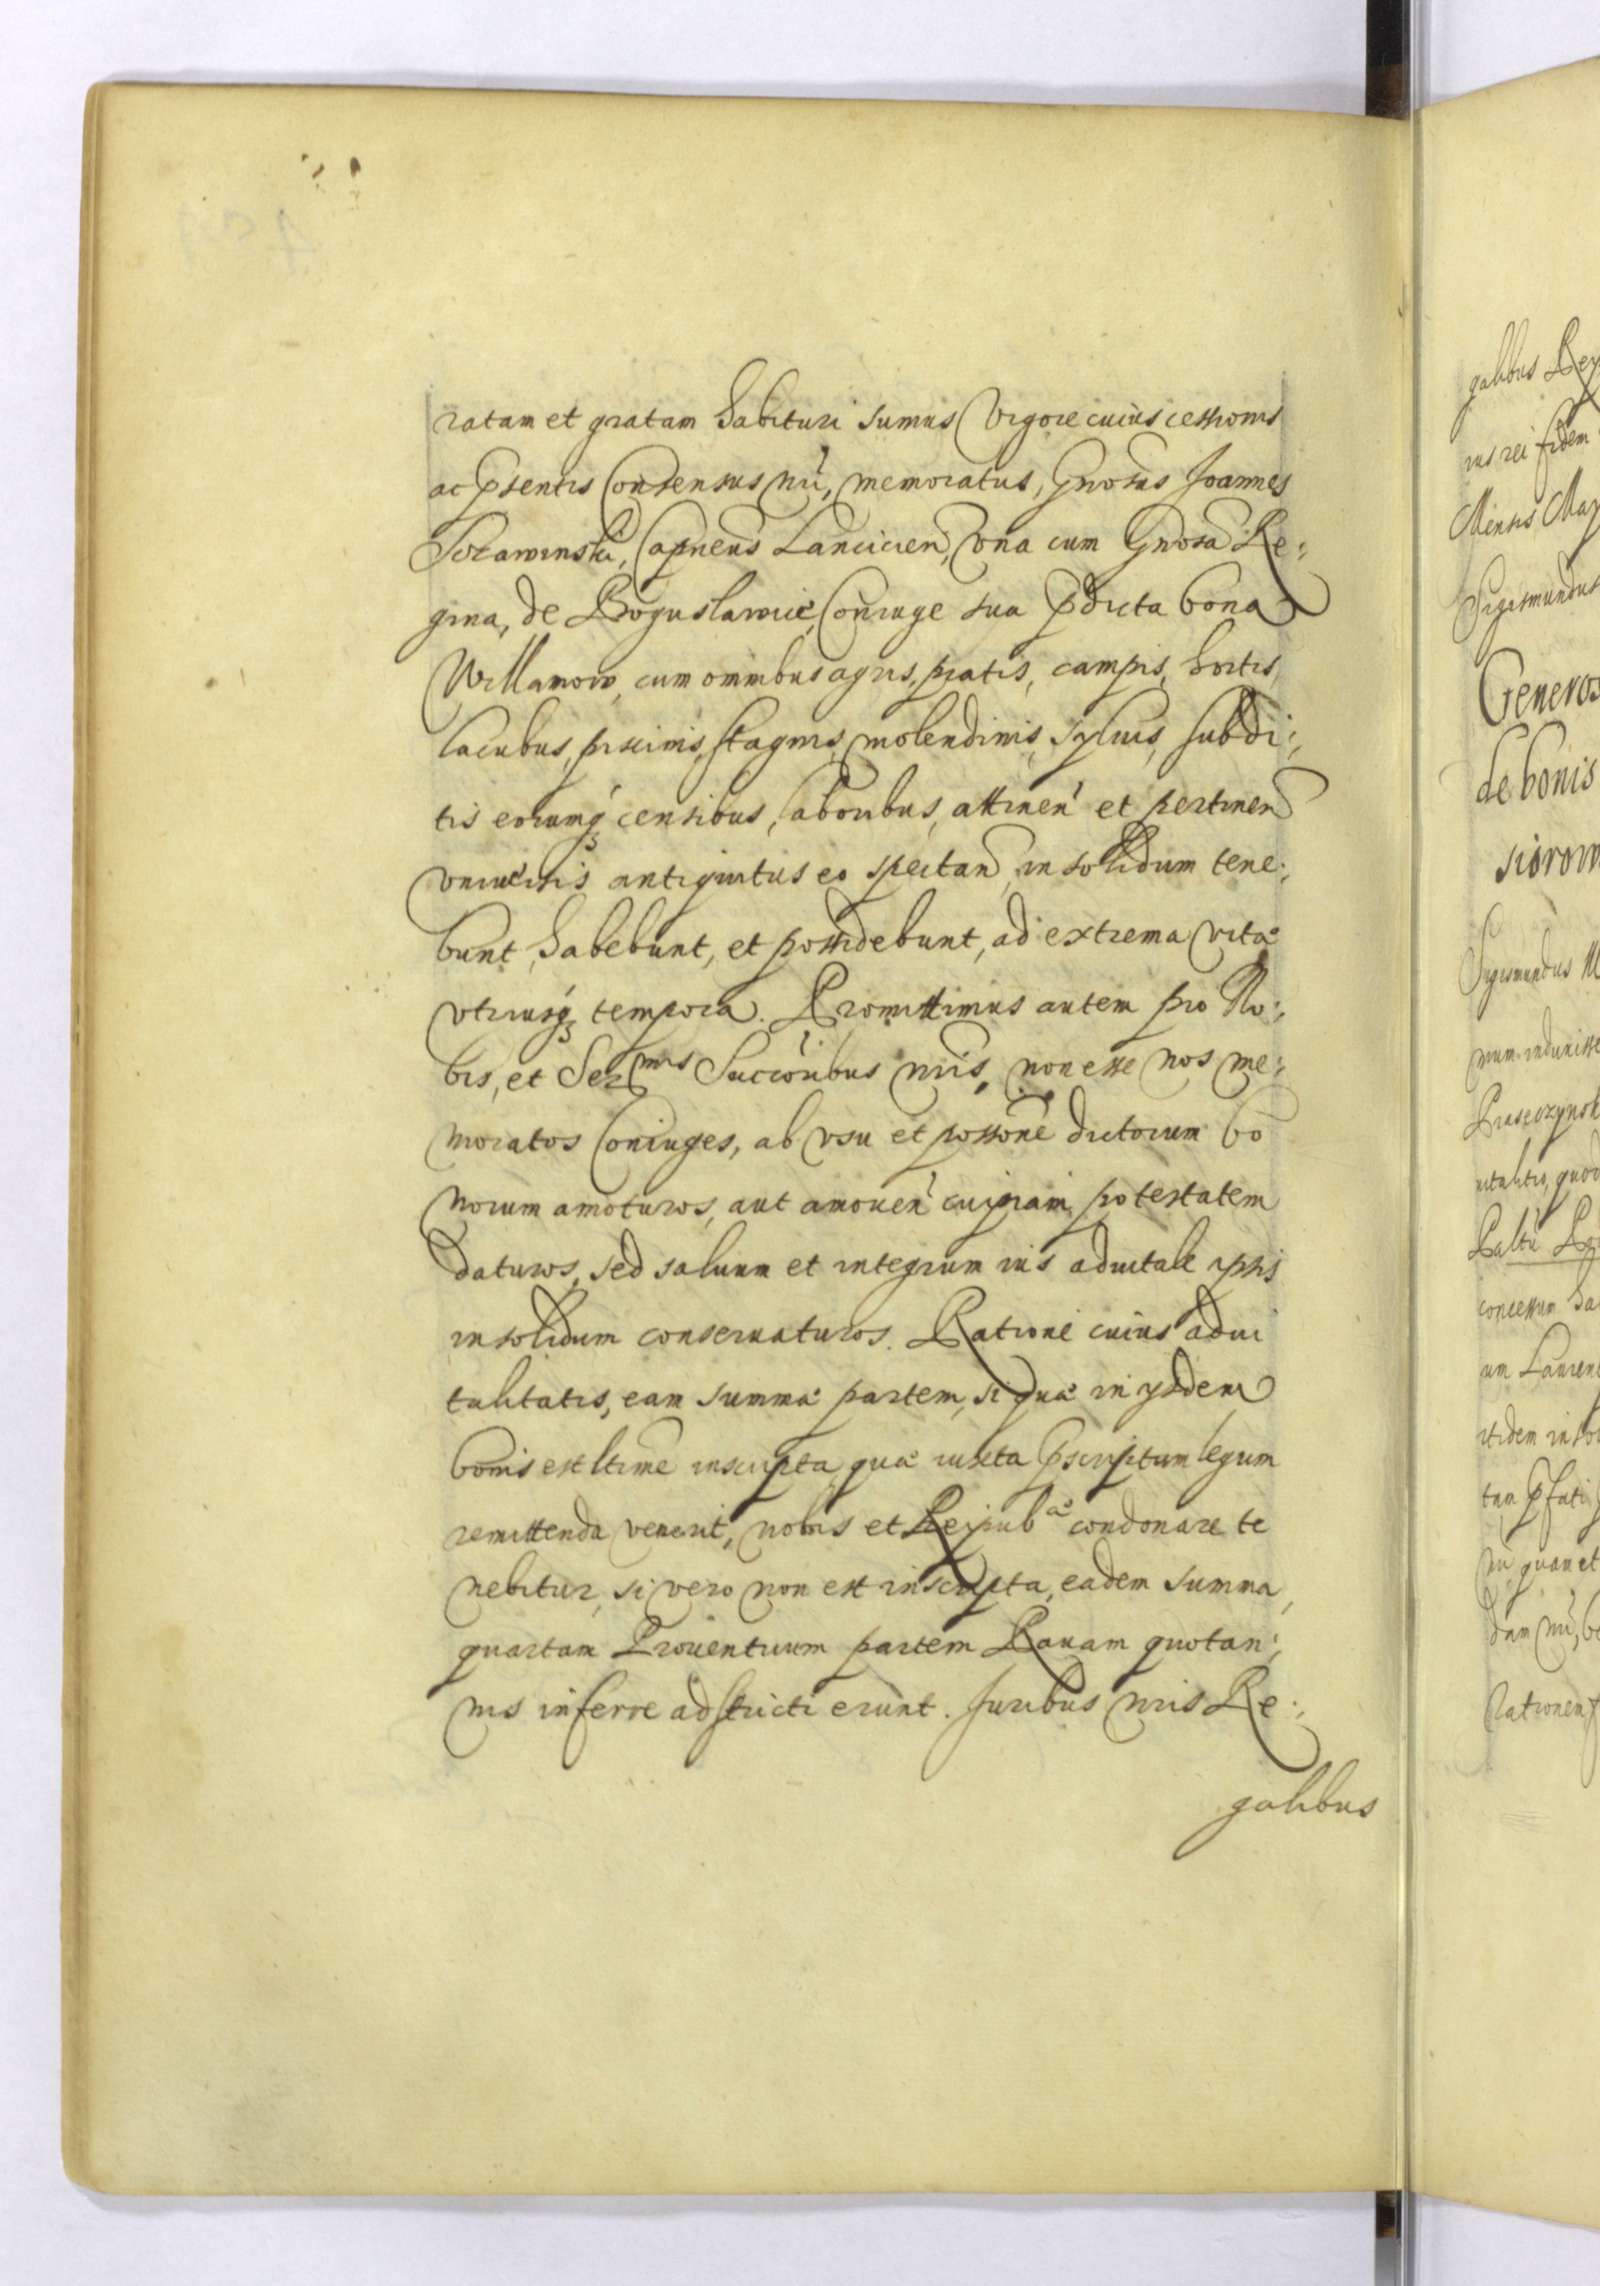 ratam et gratam habituri sumus Vigore cuius cessionis
ac pñtis Consensus nrĩ, memoratus, Gnosus Joannes
Capneus Lancicien, Vna cum Gnosa Re:
gina, de Boguslawic, Coniuge sua pdicta bona
Willamow, cum omnibus agris, pratis, campis, hortis,
lacubus, piscinis, stagnis, molendinis, syluis, subdi:
tis eorumq censibus, laboribus, attinen et pertinen
vniuersis antiquitus eo spectan, in solidum tene:
bunt, habebunt, et possidebunt, ad extrema vitæ
vtriusq tempora. Promittimus autem pro No:
bis, et Ser^mis Succōribus nrĩs, non esse nos me:
moratos Coniuges, ab vsu et possōne dictorum bo
norum amoturos, aut amouen cuipiam potestatem
daturos, sed saluum et integrum ius aduitale ipsis
in solidum conseruaturos. Ratione cuius adui
talitatis, eam summæ partem, si quæ in ysdem
bonis est ltime inscripta, quæ iuxta pscriptum legum
remittenda venerit, nobis et Reipub^cæ condonare te
nebitur, si vero non est inscripta, eadem summa,
quartam Prouentuum partem Rauam quotan:
nis inferre adstricti erunt. Juribus nrĩs Re:
galibus
galibus Reg
ius rei fidem
Mensis May
Sigismundus
Generos
de bonis
Sigismundus
concessum ha
itidem in
Rationem